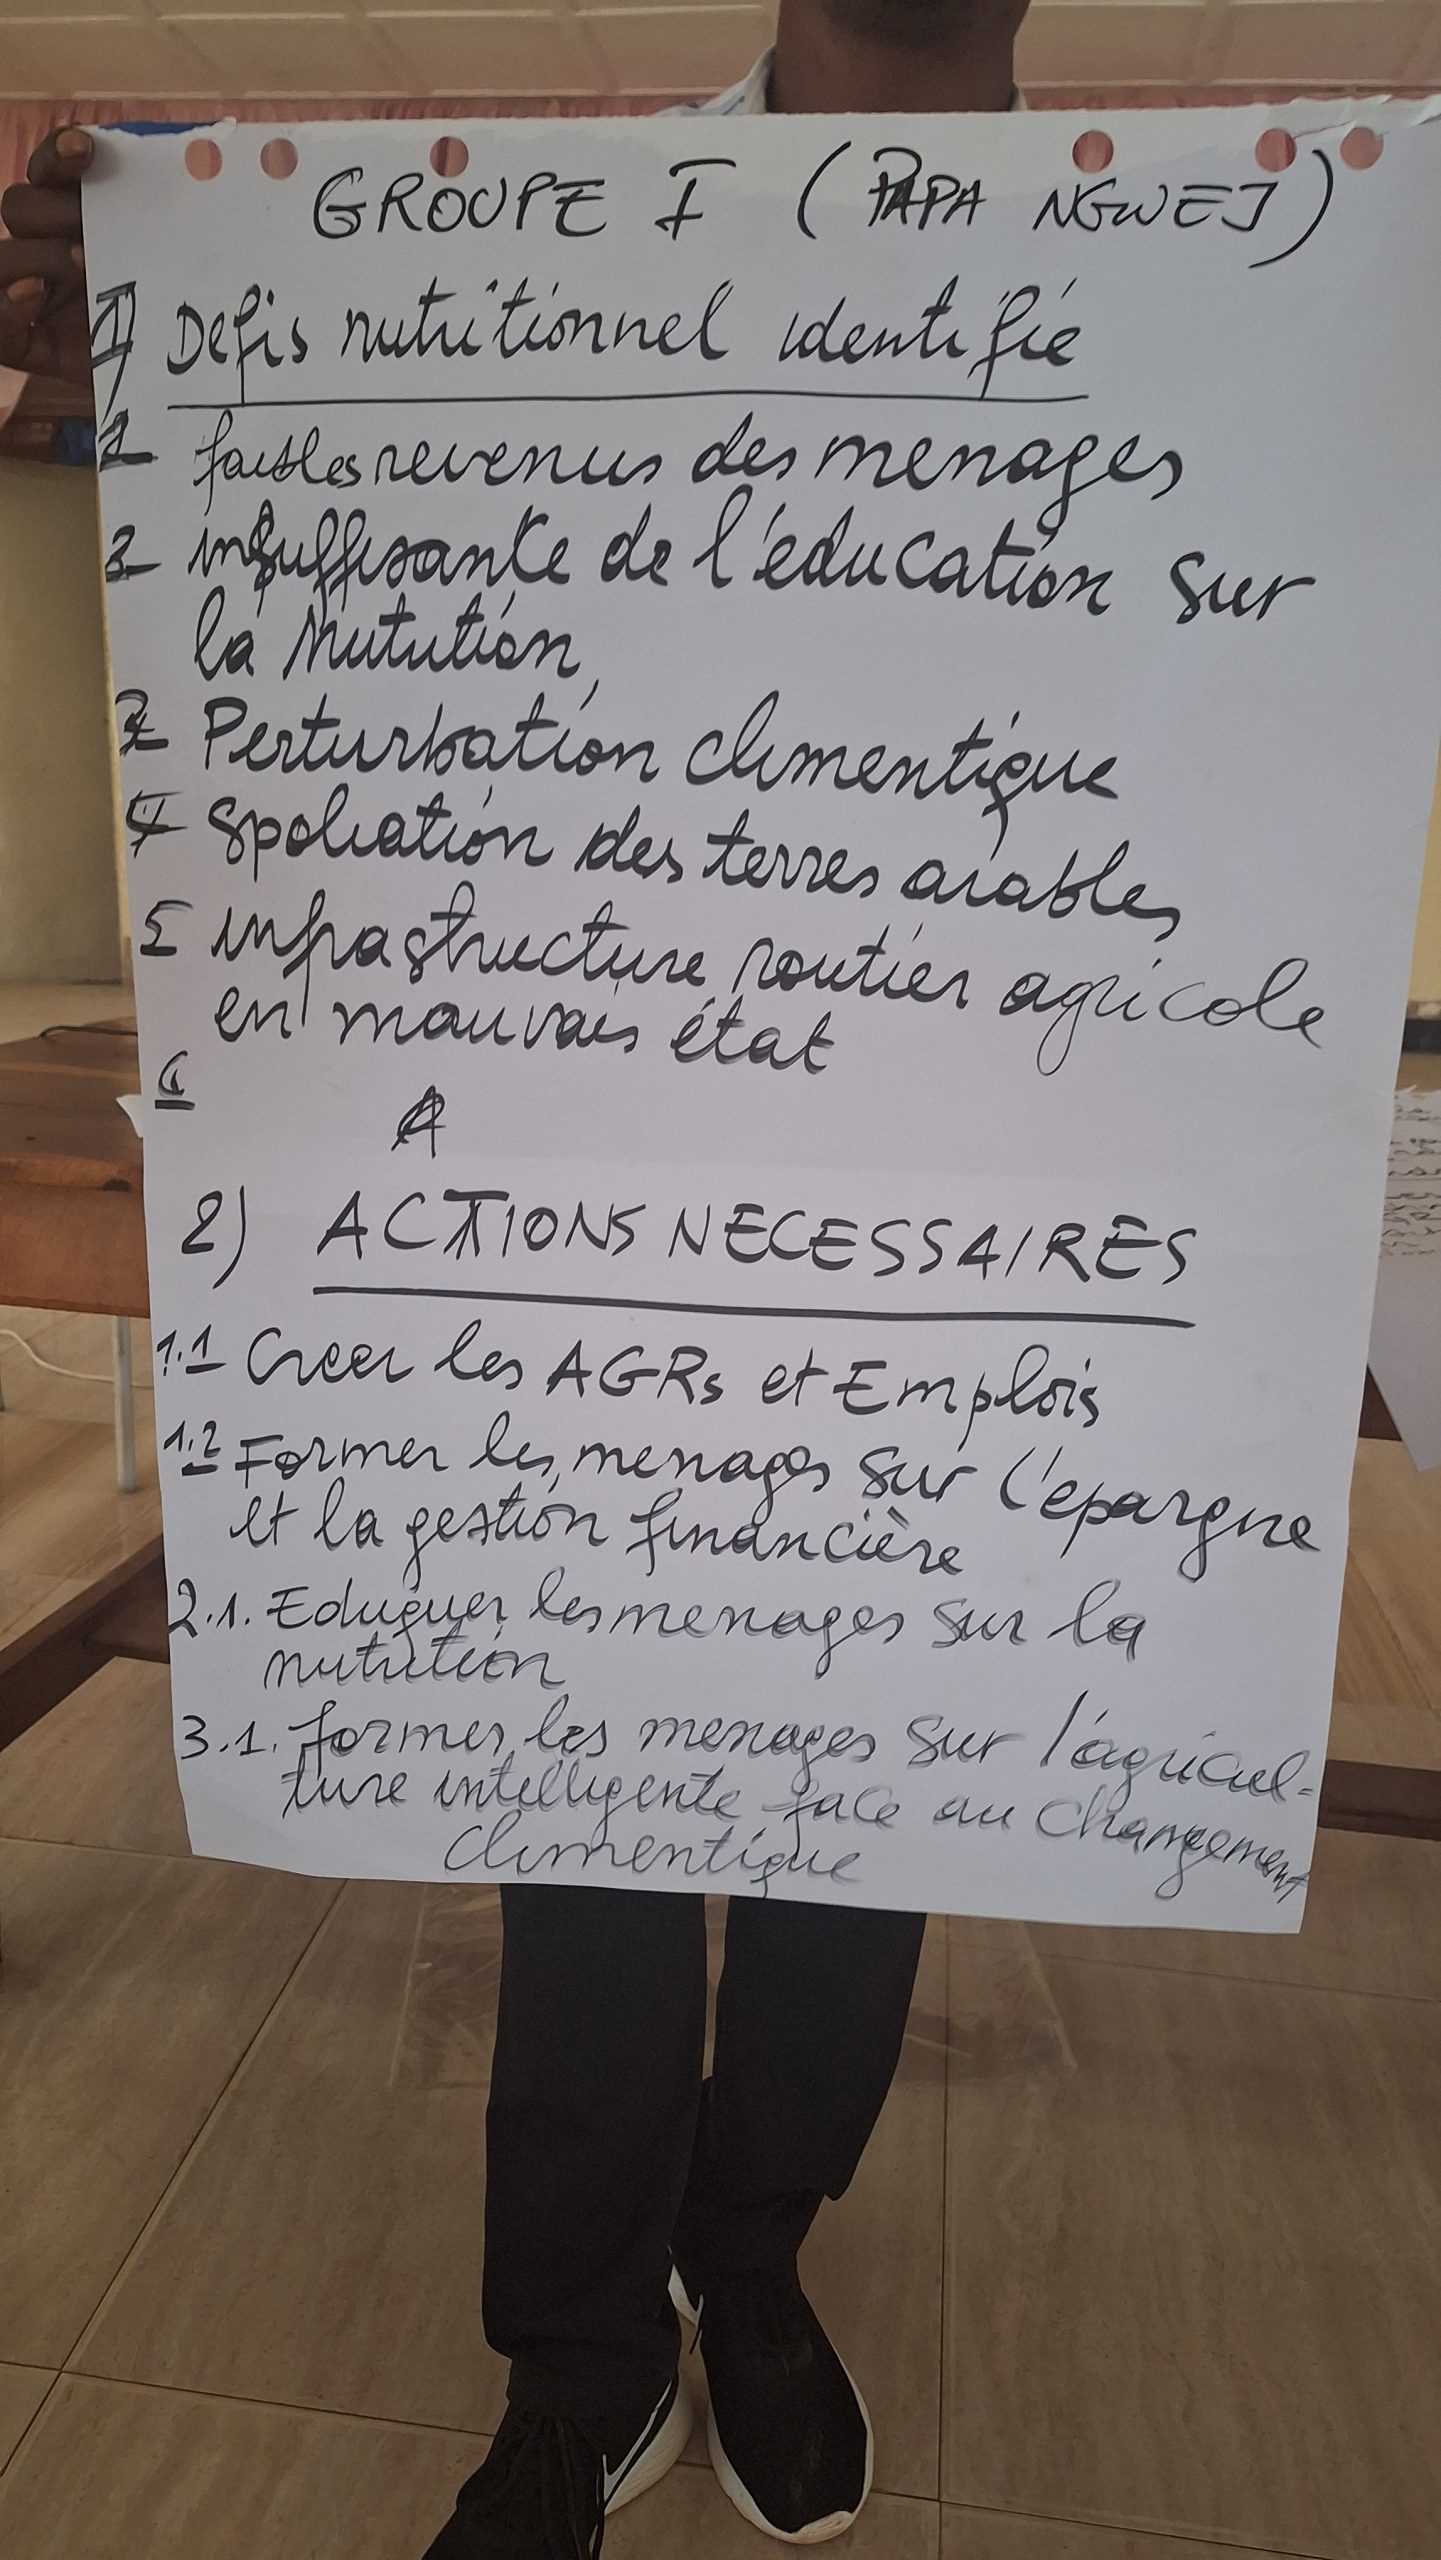 GROUPE I (PAPA NGWEJ)
1) Defis nutritionnel identifié
1 faibles revenus des menages
2 insuffisante de l'éducation sur
la Nutrution,
3 Perturbation climentique
4 Spoliation des terres arables
5 infrastructure routier agricole
en mauvais état
6
A
2) ACTIONS NECESSAIRES
1.1 Creer les AGRs et Emplois
1.2 Former les menages sur l'epargne
et la gestion financière
2.1. Eduquer les menages sur la
nutrition
3.1. former les menages sur l'agricul-
ture intelligente face au changement
climentique